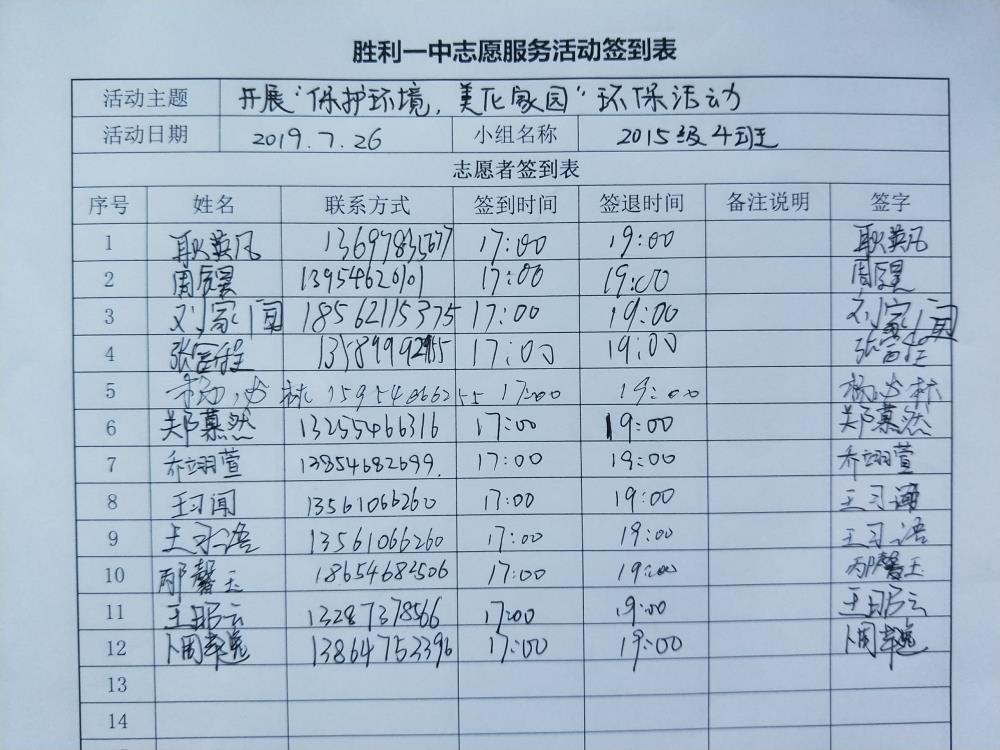 胜利一中志愿服务活动签到表
活动主题 开展“保护环境，美化家园”环保活动
活动日期 2019.7.26 小组名称 2015级4班
志愿者签到表
序号 姓名 联系方式 签到时间 签退时间 备注说明 签字
1 耿英凡 13697835677 17:00 19:00 耿英凡
2 周辰昊 13954620101 17:00 19:00 周辰昊
3 刘家闻 18562115375 17:00 19:00 刘家闻
4 张富程 17:00 19:00 张富程
5 杨必林 15954866255 17:00 19:00 杨必林
6 郑慕然 13255466316 17:00 19:00 郑慕然
7 乔翊萱 13854682699. 17:00 19:00 乔翊萱
8 王习闻 13561066260 17:00 19:00 王习闻
9 王习语 13561066260 17:00 19:00 王习语
10 邴馨玉 18654682506 17:00 19:00 邴馨玉
11 王昭云 13287378566 17:00 19:00 王昭云
12 13864753396 17:00 19:00
13
14